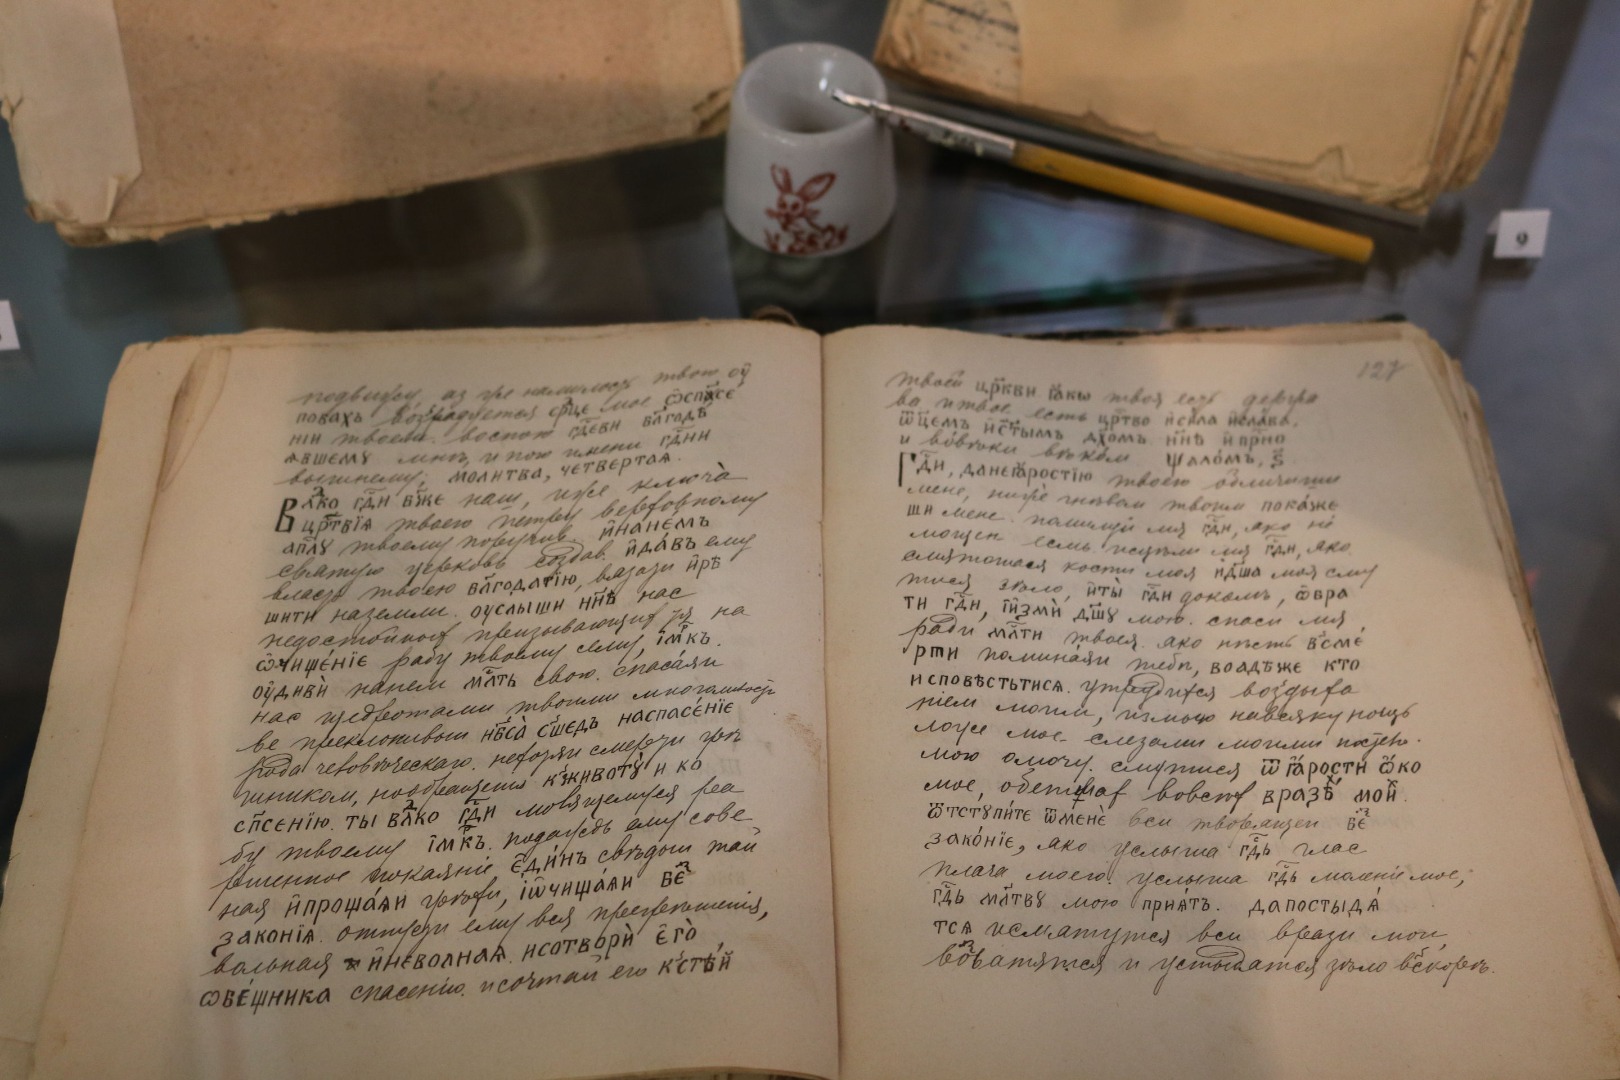 подвижꙋ, аз же на милость твою оу҆
повахъ возрадуетсяср҃це мое ѡ҆ спа҃се
нїи твоемъ. воспою гдⷭ҇еви бл҃годѣ
ꙗвшемꙋ мнѣ, и пою имени гдⷭ҇ни
вышнему, молитва, четвертаѧ.
Влⷣко гдⷭ҇и бж҃е наш, иже ключа̀
црⷭ҇твїѧ твоего петру верховному
апⷭ҇лꙋ твоему поручив. и҆ на не́мъ
святую церковь создав. и҆ да́въ ему
власть твоею бл҃года́тїю, вязати и҆ рѣ
шити на земли. оуслыши нн҃ѣ нас
недостойных призывающих тя на
ѡ҆чище́нїе рабу твоему сему, і҆м҃къ.
оу҆дивѝ на нем млⷭ҇ть свою. спаса́ѧи
нас щедротами твоими многомилости
ве преклонивыи нб҃са̀ сше́дъ на спасе́нїе
рода человѣческаго. не хотяи смерти грѣ
шником, но обращения къ животꙋ̀ и ко
сп҃се́нїю. ты влⷣко гдⷭ҇и молящемуся ра
бу твоему і҆м҃къ. подаждь ему сове
ршенное покаяніе є҆ди́нъ свѣдыи таи
ная и҆ проща́ѧи грѣхи, і҆ ѡ҆чища́ѧи беⷥ
зако́нїѧ. отпусти ему вся прегрѣшенія,
вольная и҆ нево́лнаѧ. и сотворѝ є҆го̀,
ѡ҆бе́щника спасенію. и сочтай его къ ст҃ѣй
127
твоей цр҃кви ꙗ҆кѡ твоя есть держа
ва и твое есть црⷭ҇тво и҆ си́ла и҆ сла́ва.
ѿц҃емъ и҆ ст҃ымъ дх҃омъ нн҃ѣ и҆ при́сно
и во́вѣки вѣком. ѱало́мъ, ѕ҃.
Гдⷭ҇и, да не ꙗ҆ростїю твоею обличиши
мене, нижѐ гнѣвом твоим пока́же
ши мене. помилуй мя гдⷭ҇и, яко не́
мощен есмь. исцѣли мя гдⷭ҇и, яко.
смятошася кости моя и҆ дш҃а моя смя
теся зѣло, и҆ ты̀ гдⷭ҇и доколѣ, ѡ҆бра
ти гдⷭ҇и, і҆ и҆змѝ дш҃ꙋ мою. спаси мя
ради млⷭ҇ти твоея. яко нѣсть в сме́
рти помина́яи тебе, во а́дѣ же кто
исповѣстьтисѧ. утрудихся воздыха
ніем моим, измыю на всяку нощь
ложе мое. слезами моими постелю.
мою омочу. смутися ѿ ꙗ҆́рости ѻ҆́ко
мое, обетшах во всех вразѣ́х мои́х.
ѿстꙋпи́те ѿ менѐ вси творящеи беⷥ
зако́нїе, яко услыша гдⷭ҇ь глас
плача моего. услыша гдⷭ҇ь моленіе мое,
гдⷭ҇ь мл҃твꙋ мою прїѧ́тъ. да постыдѧ́
тсѧ и смятутся вси врази мои,
возвратятся и устыдятся зѣло в ско́рѣ.
9